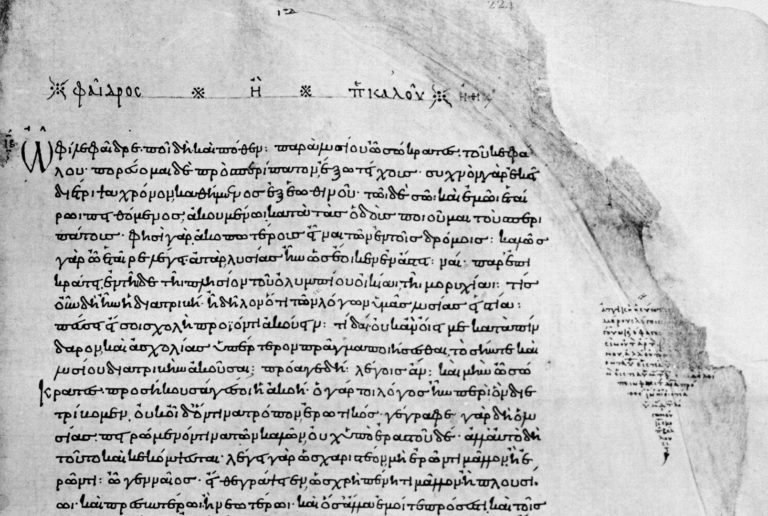 φαῖδρος ἢ π καλοῦ ἠθικ
Ὦ φίλε φαῖδρε· ποῖ δὴ καὶ πόθεν: παρὰ λυσίου ὦ σώκρατες· τοῦ κεφά
λου· πορεύομαι δὲ πρὸς περίπατον ἔξω τείχους· συχνὸν γὰρ ἐκεῖ
διέτριψα χρόνον, καθήμενος ἐξ ἑωθινοῦ· τῶι δὲ σῶι καὶ ἐμῶι ἑταί
ρωι πειθόμενος, ἀκουμενῶι κατὰ τὰς ὁδοὺς ποιοῦμαι τοὺς περι
πάτους· φησὶ γὰρ ἀκοπωτέρους εἶναι τῶν ἐν τοῖς δρόμοις: καλῶς
γὰρ ὦ ἑταῖρε λέγει· ἀτὰρ λυσίας ἦν ὡς ἔοικεν ἐν ἄστει: ναί· παρ' ἐπι
κράτει, ἐν τῆδε τῆι πλησίον τοῦ ὀλυμπίου οἰκίαι τῆι μορυχίαι: τίς
οὖν δὴ ἦν ἡ διατριβή· ἢ δῆλον ὅτι τῶν λόγων ὑμᾶς λυσίας εἱστία:
πεύσει εἴ σοι σχολὴ προϊόντι ἀκούειν: τί δαί· οὐκ ἂν οἴει με κατὰ πίν
δαρον, καὶ ἀσχολίας ὑπέρτερον πρᾶγμα ποιήσεσθαι, τὸ σήν τε καὶ
λυσίου διατριβὴν ἀκοῦσαι: πρόαγε δή: λέγοις ἄν: καὶ μὴν ὦ σώ
κρατες προσήκουσά γέ σοι ἡ ἀκοή· ὁ γάρ τοι λόγος ἦν περὶ ὃν διε
τρίβομεν, οὐκ οἶδ' ὅντινα τρόπον ἐρωτικός· γέγραφε γὰρ δὴ ὁ λυ
σίας· πειρώμενόν τινα τῶν καλῶν, οὐχ ὑπ' ἐραστοῦ δέ· ἀλλ' αὐτὸ δὴ
τοῦτο καὶ κεκόμψευται· λέγει γὰρ ὡς χαριστέον μὴ ἐρῶντι μᾶλλον ἢ ἐ
ρῶντι: ὦ γενναῖος· εἴθε γράψειεν ὡς χρὴ πένητι μᾶλλον ἢ πλουσί
ωι· καὶ πρεσβυτέρωι ἢ νεωτέρωι· καὶ ὅσα ἄλλα ἐμοί τε πρόσεστι καὶ τοῖς